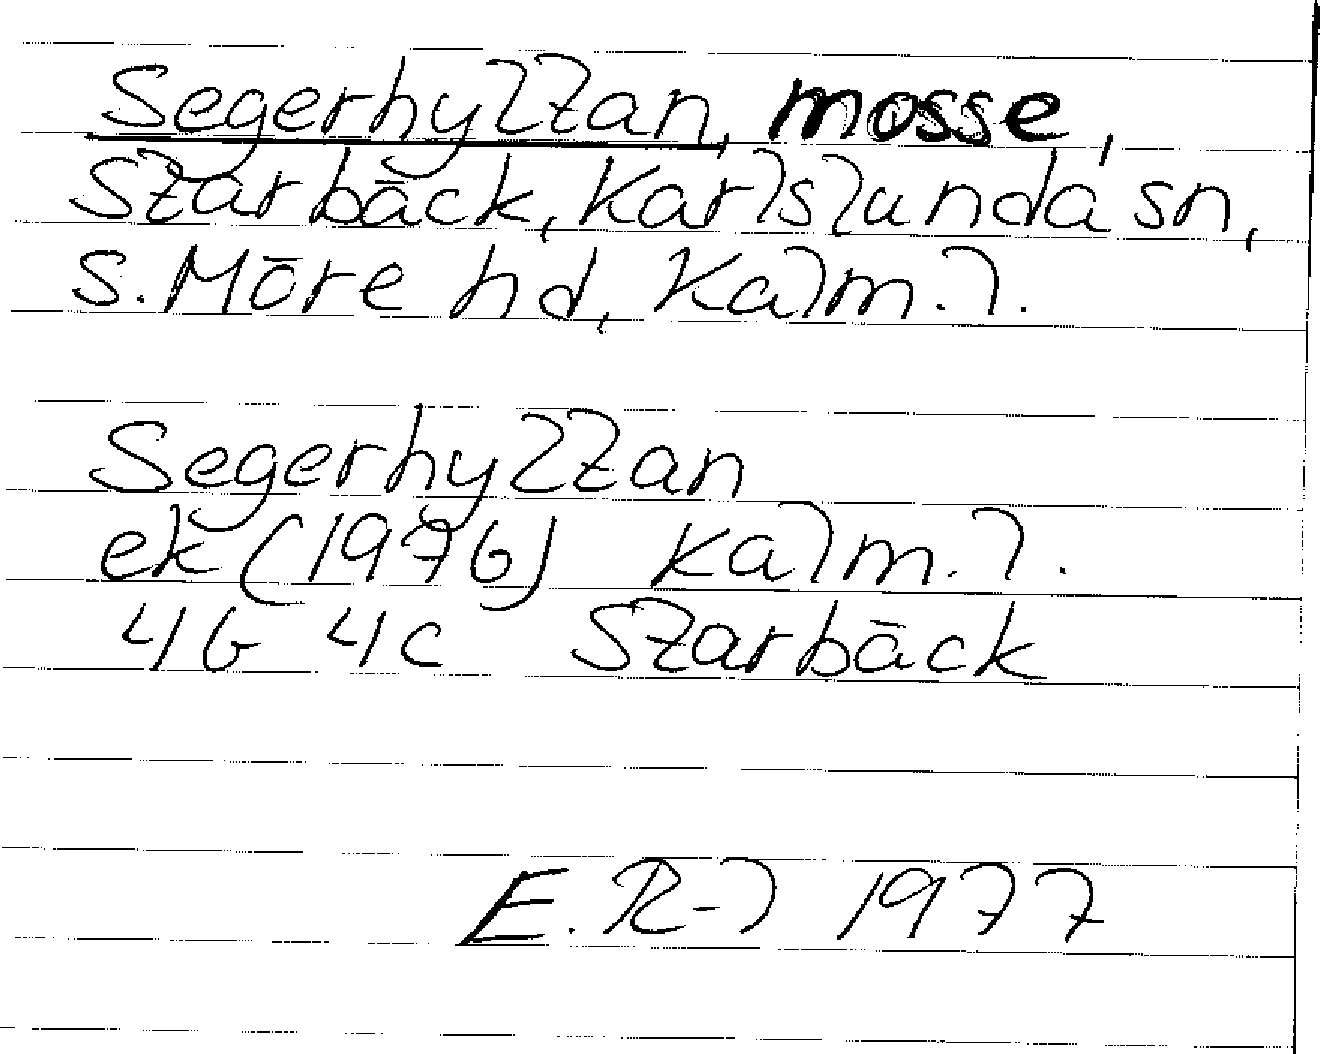 Segerhyltan, mosse,
Starbäck, Karlslunda sn,
S. Möre hd, Kalm. l.
Segerhyltan
ek (1976) Kalm. l.
4G 4c Starbäck
E. R-l 1977